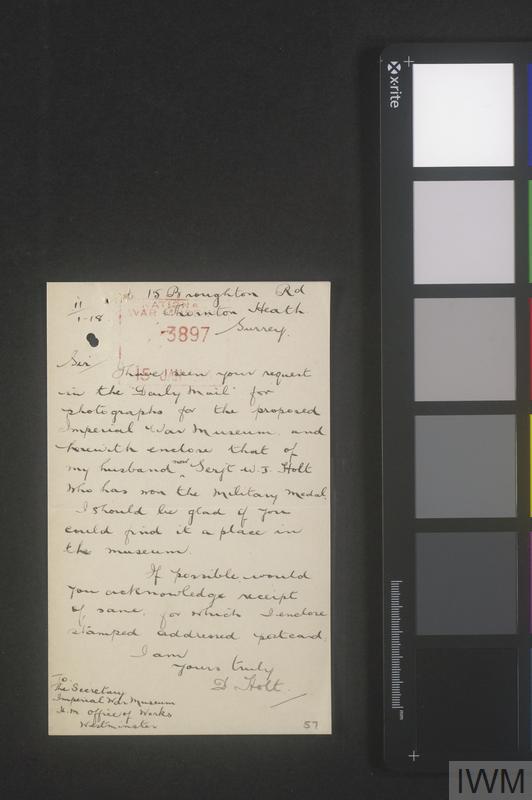 15 Broughton Rd
Thornton Heath
Surrey.
11
1-18.
NATIONAL
WAR
3897
15 JAN
Sir
I have seen your request
in the "Daily Mail" for
photographs for the proposed
Imperial War Museum. and
herewith enclose that of
my husband now Serjt W. J. Holt
who has won the Military Medal.
I should be glad if you
could find it a place in
the museum.
If possible, would
you acknowledge receipt
of same. for which I enclose
stamped addressed postcard.
I am
Yours truly
D Holt.
To.
The Secretary
Imperial War Museum
H.M. Office of Works
Westminster
57
x-rite
mm
IWM